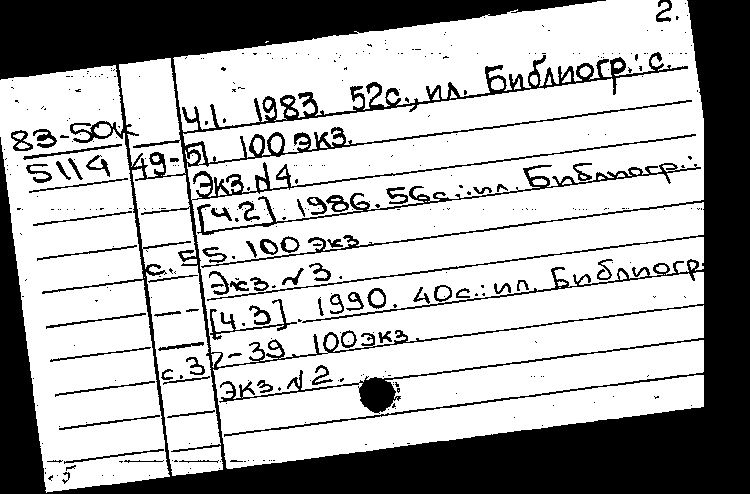 2.
Ч.1. 1983. 52с., ил. Библиогр.: с.
83-50к
5114 49-51. 100 экз.
Экз. N4.
[Ч.2]. 1986. 56с.: ил. Библиогр.:
с. 55. 100 экз.
Экз. N3.
[Ч.3]. 1990. 40с.: ил. Библиогр.
с. 37-39. 100 экз.
Экз. N2.